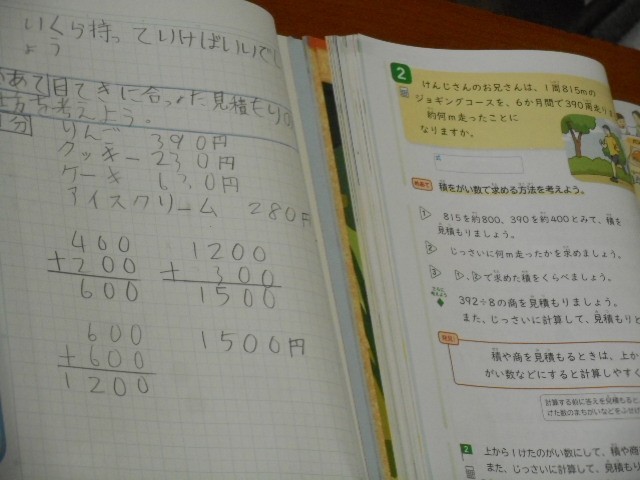 いくら持っていけばいいでし
ょう
めあて 目てきに合った見積もりの
し方を考えよう。
自分
りんご 390円
クッキー 230円
ケーキ 630円
アイスクリーム 280円
400
+200
600
1200
+ 300
1500
600
+600
1200
1500円
2
けんじさんのお兄さんは、1周815mの
ジョギングコースを、6か月間で390周走りま
約何m走ったことに
なりますか。
めあて 積をがい数で求める方法を考えよう。
1 815を約800、390を約400とみて、積を
見積もりましょう。
2 じっさいに何m走ったかを求めましょう。
3 1、2で求めた積をくらべましょう。
392÷8の商を見積もりましょう。
また、じっさいに計算して、見積もりと
積や商を見積もるときは、上か
がい数などにすると計算しやすく
計算する前に答えを見積もると、
けた数のまちがいなどをふせげ
2 上から1けたのがい数にして、積や商
また、じっさいに計算して、見積もり